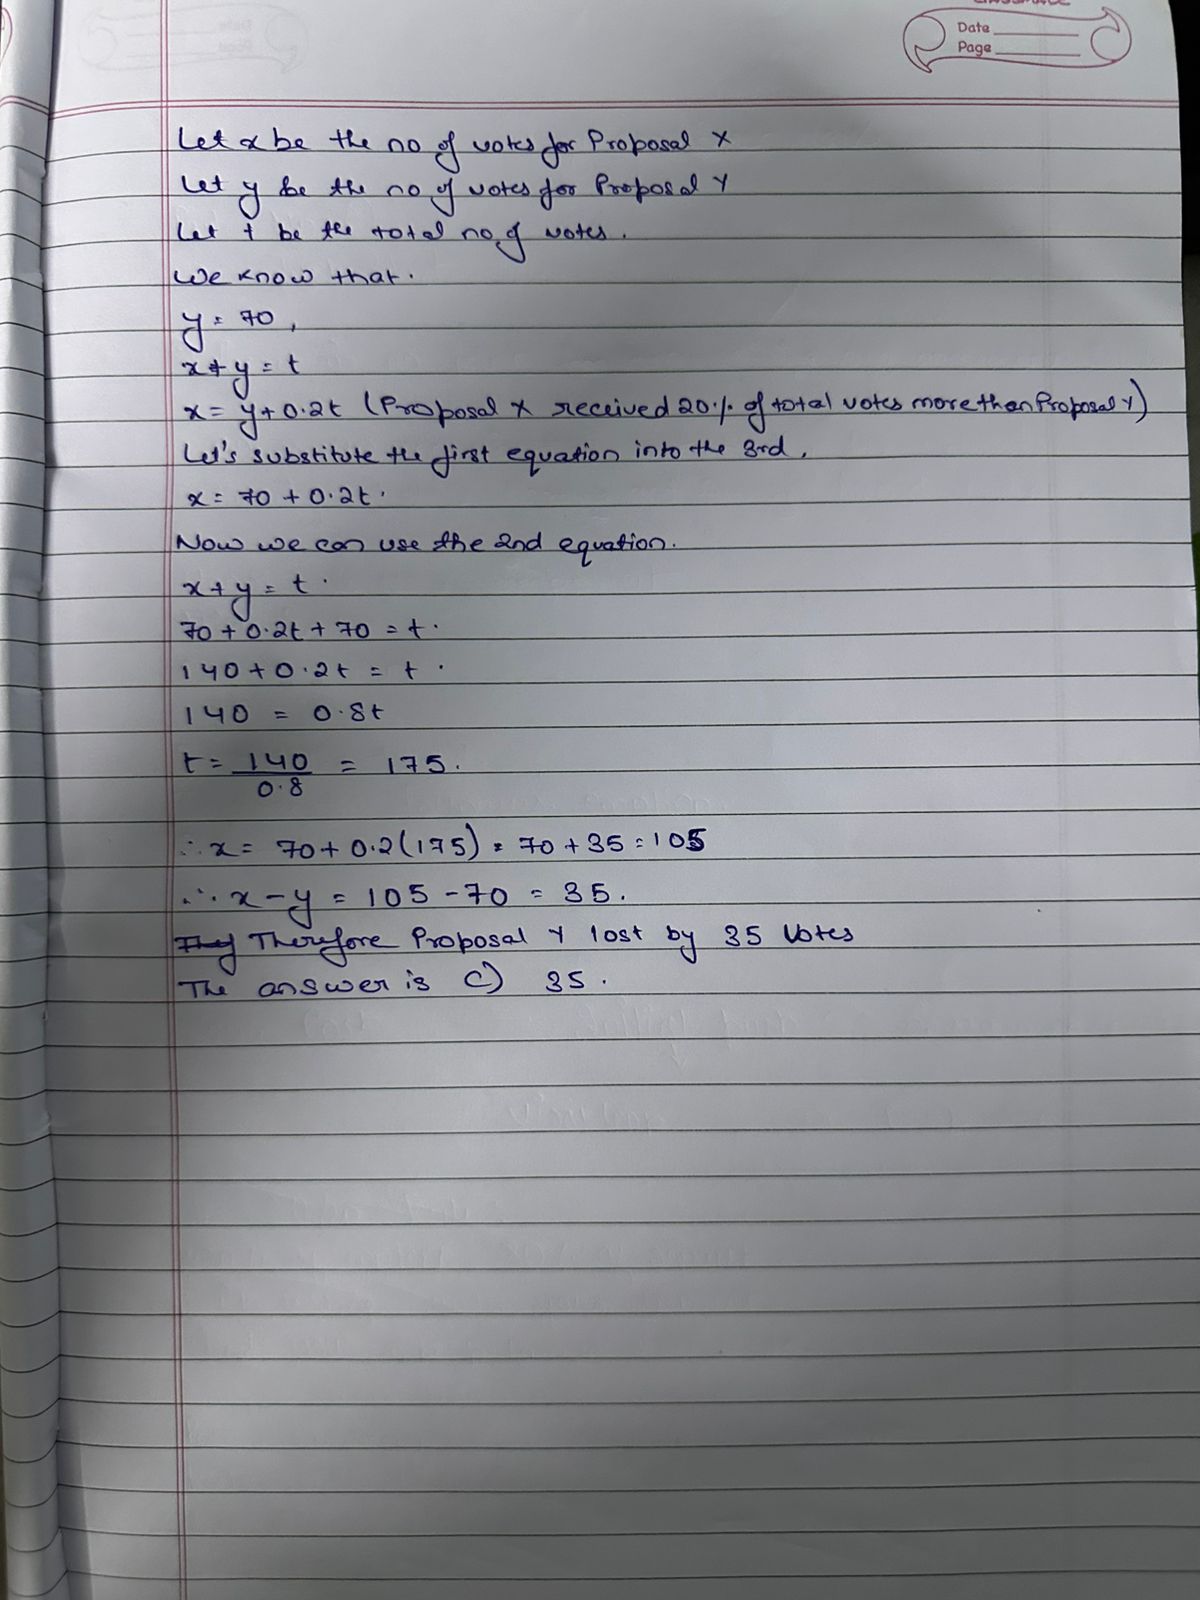 Date
Page
Let x be the no of votes for Proposal X
Let y be the no of votes for Proposal Y
Let t be the total no of votes.
We know that.
y = 70,
x + y = t
x = y + 0.2t (Proposal X received 20% of total votes more than Proposal Y)
Let's substitute the first equation into the 3rd.
x = 70 + 0.2t.
Now we can use the 2nd equation.
x + y = t.
70 + 0.2t + 70 = t.
140 + 0.2t = t.
140 = 0.8t
t = 140/0.8 = 175.
∴ x = 70 + 0.2(175) = 70 + 35 = 105
∴ x - y = 105 - 70 = 35.
Therefore Proposal Y lost by 35 Votes
The answer is C) 35.